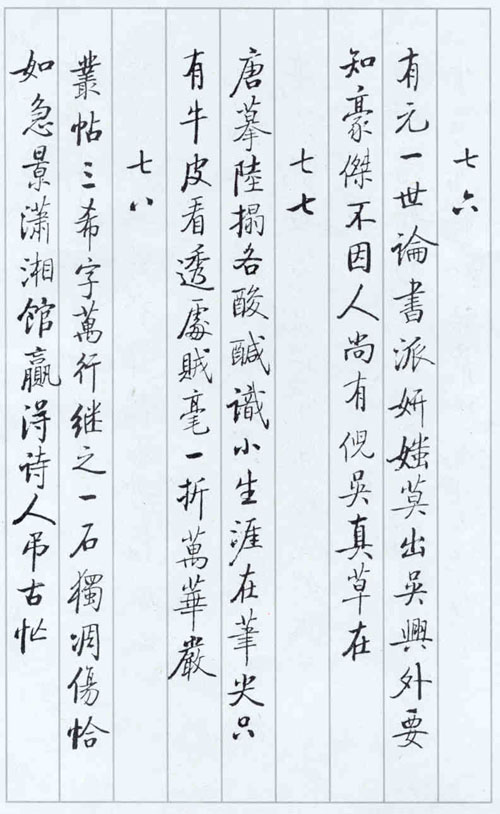 七六
有元一世論書派妍媸莫出吳興外要
知豪傑不因人尚有倪吳真草在
七七
唐摹陸搨各酸鹹識小生涯在筆尖只
有牛皮看透處賊毫一折萬華嚴
七八
叢帖三希字萬行继之一石獨凋傷恰
如急景瀟湘館贏得诗人吊古忙